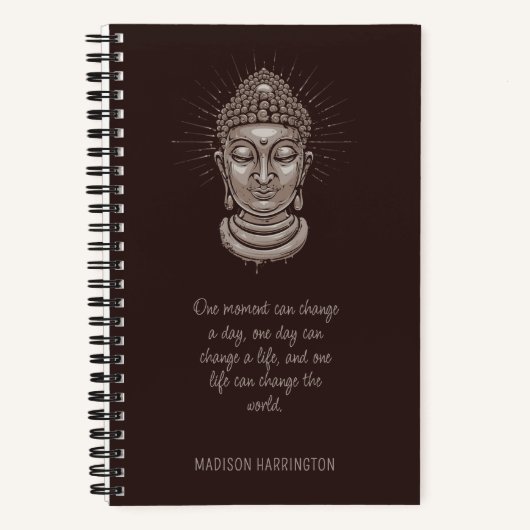 One moment can change
a day, one day can
change a life, and one
life can change the
world.
MADISON HARRINGTON